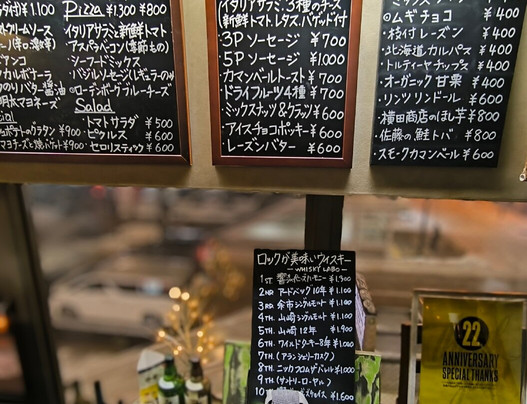 ダ付)¥1.100
クリームソース
カルボナーラ
のりバター醤油
明太マヨネーズ
のグラタン ¥900
バゲット¥900
Pizza ¥1.300 ¥800
イタリアサラミと新鮮トマト
アスパラベーコン(季節もの)
シーフードミックス
バジルソーセージ
ゴロゴロベーコン
ブルーチーズ
Salad
トマトサラダ ¥500
ピクルス ¥600
セロリスティック ¥600
イタリアサラミ、3種のチーズ
(新鮮トマト、レタス、バゲット付
3Pソーセージ ¥700
5Pソーセージ ¥1000
・カマンベールトースト ¥700
・ドライフルーツ4種 ¥700
・ミックスナッツ&クラッツ ¥600
・アイスチョコポッキー ¥600
・レーズンバター ¥600
◎ムギチョコ ¥400
・枝付レーズン ¥400
・北海道カルパス ¥400
・トルティーヤチップス ¥400
・オーガニック甘栗 ¥400
・リンツリンドール ¥600
・横田商店のほし芋 ¥800
・佐藤の鮭トバ ¥800
・スモークカマンベール ¥600
ロックが美味いウイスキー
—WHISKY LABO—
1ST ¥1.300
2ND アードベック10年 ¥1.100
3RD 余市シングルモルト ¥1.100
4TH. 山崎シングルモルト ¥1.100
5TH. 山崎12年 ¥1.900
6TH. ワイルドターキー8年 ¥1.000
7TH. (アランシェリーカスク)
8TH ニッカフロムザバレル ¥1.000
9TH (サントリーローヤル)
10 ¥1.600
22
ANNIVERSARY
SPECIAL THANKS